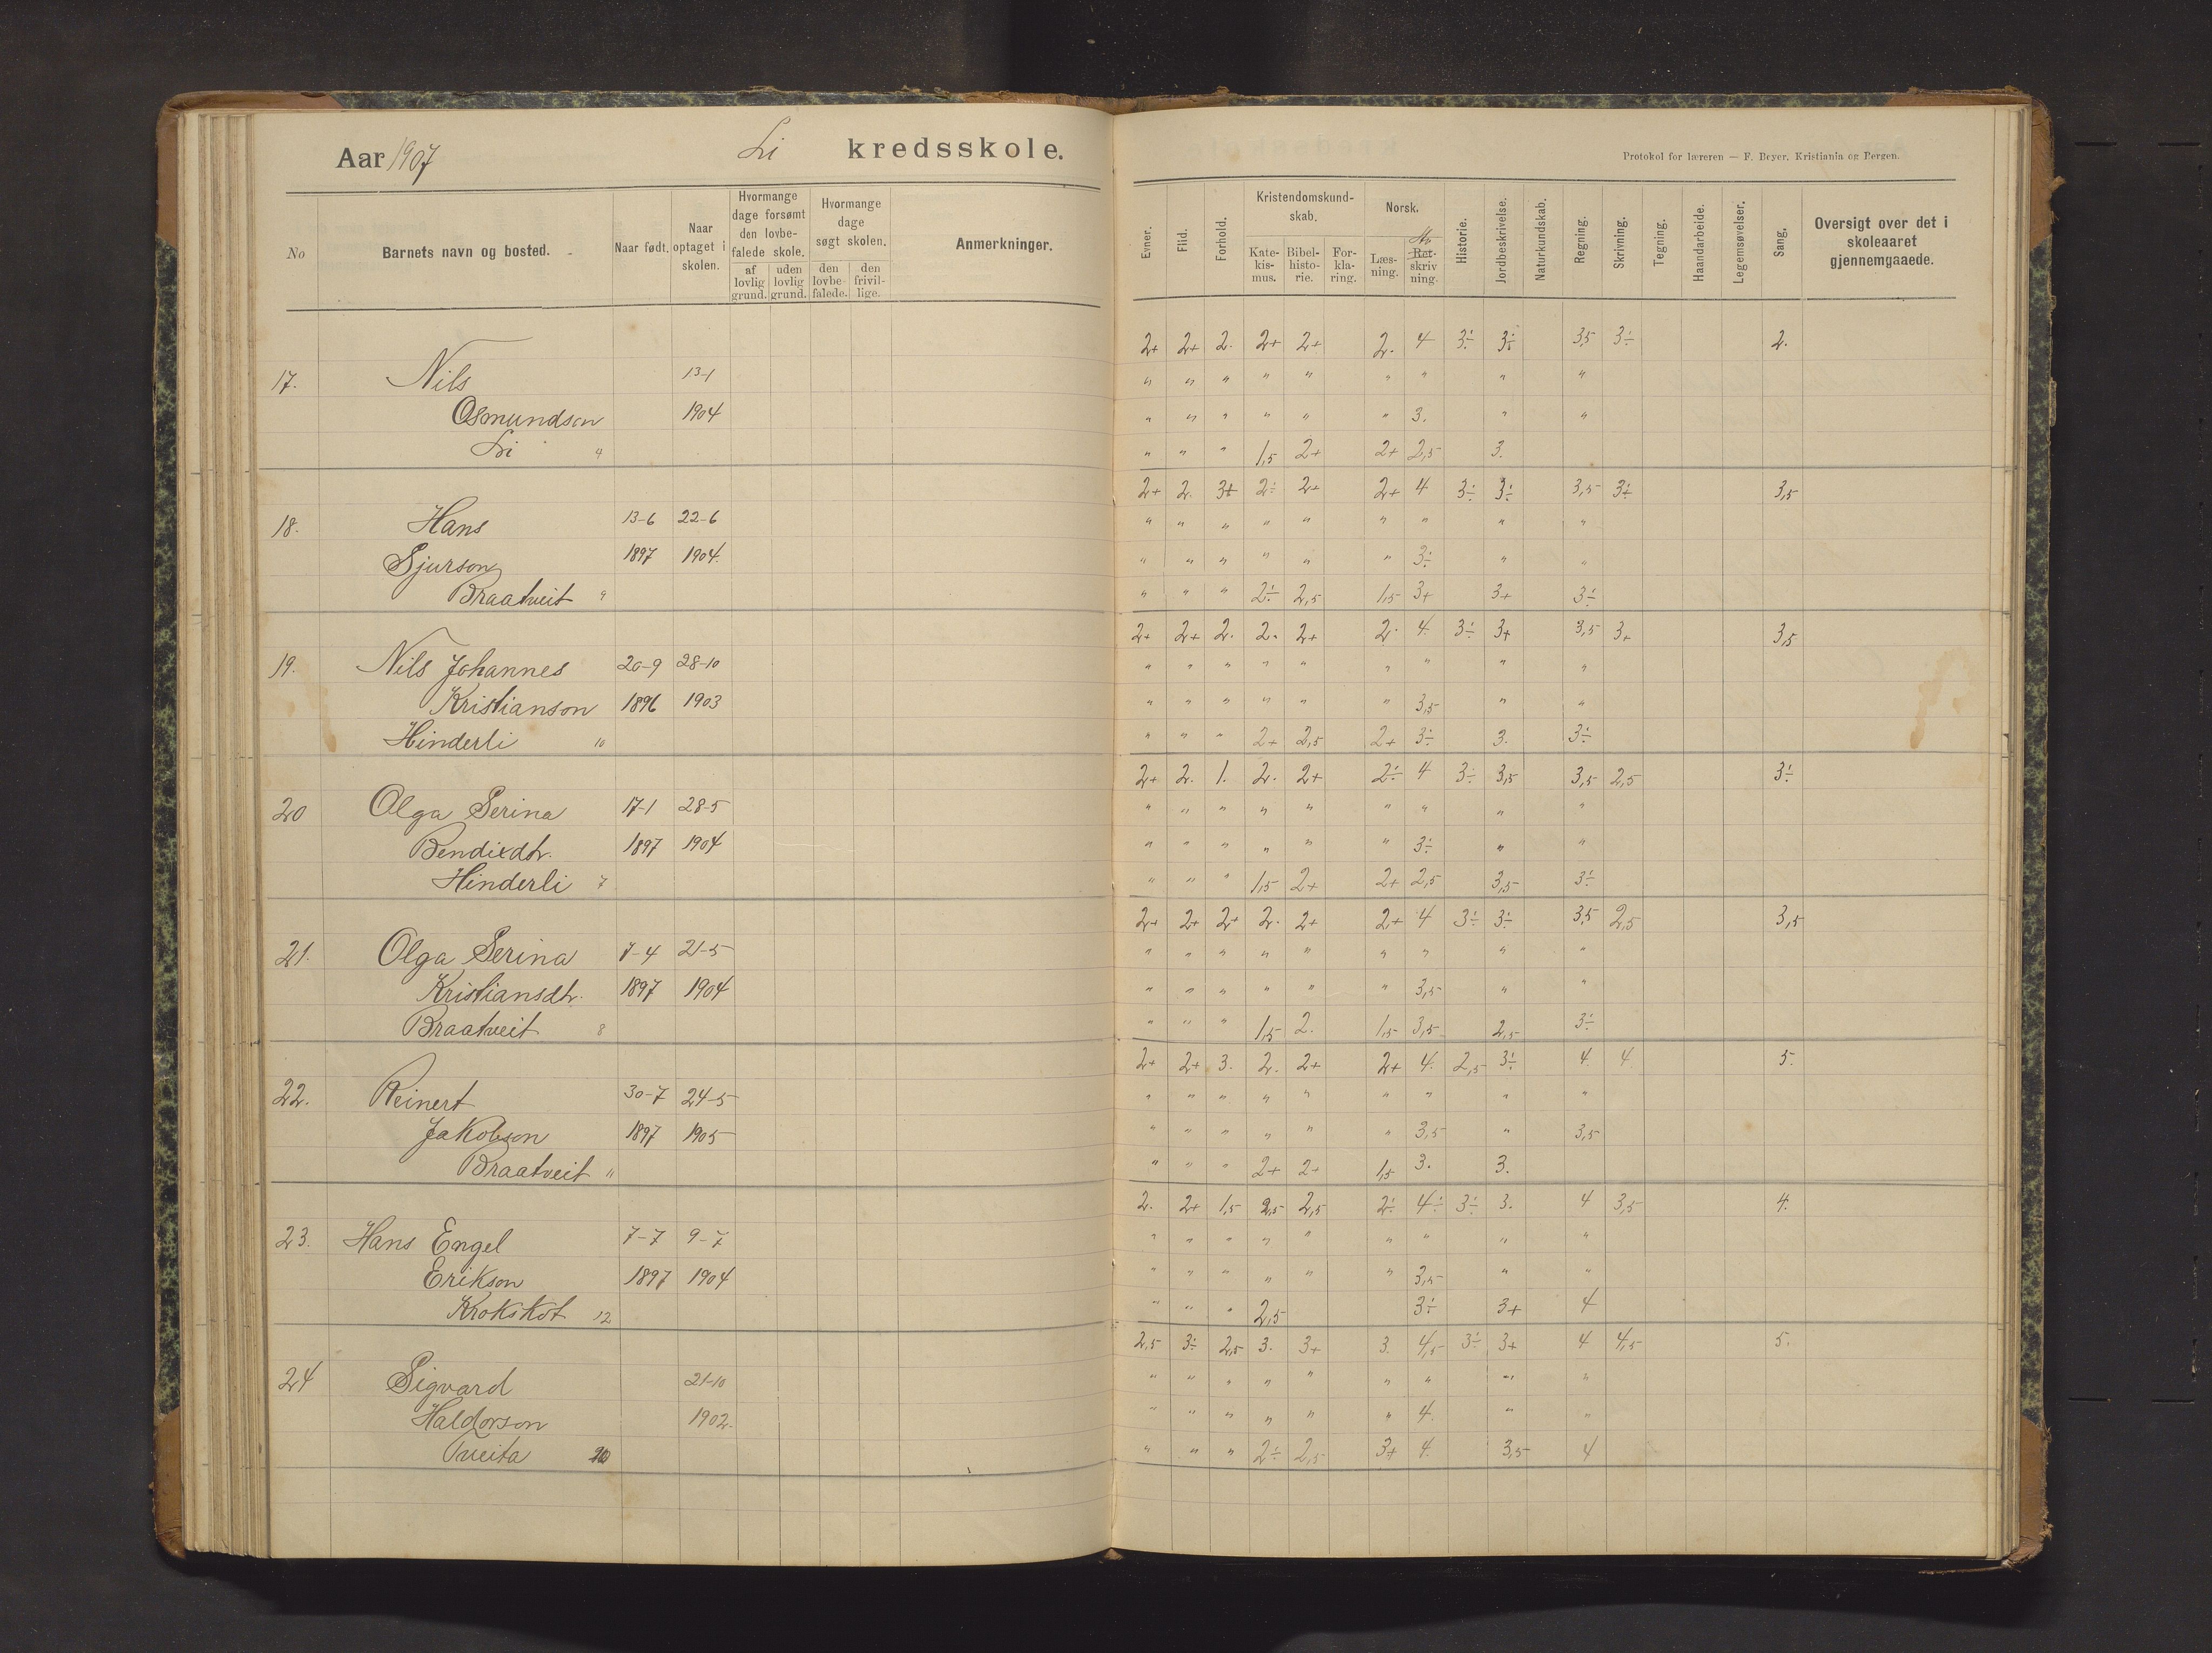 Aar 1907 Li kredsskole.
Protokol for læreren — F. Beyer. Kristiania og Bergen.
No Barnets navn og bosted. Naar født. Naar optaget i skolen. Hvormange dage forsømt den lovbefalede skole. af lovlig grund. uden lovlig grund. Hvormange dage søgt skolen. den lovbefalede. den frivillige. Anmerkninger.
Evner. Flid. Forhold. Kristendomskundskab. Katekismus. Bibelhistorie. Forklaring. Norsk. Læsning. Retskrivning. Historie. Jordbeskrivelse. Naturkundskab. Regning. Skrivning. Tegning. Haandarbeide. Legemsøvelser. Sang. Oversigt over det i skoleaaret gjennemgaaede.
2+ 2+ 2. 2+ 2+ 2. 4 3÷ 3÷ 3,5 3÷ 2.
17. Nils 13-1 " " " " " " " " "
Osmundson 1904 " " " " " " 3. " "
Li 9 " " " 1,5 2+ 2+ 2,5 3.
2+ 2. 3+ 2÷ 2+ 2+ 4 3÷ 3÷ 3,5 3+ 3,5
18. Hans 13-6 22-6 " " " " " " " " "
Sjurson 1897 1904. " " " " " " 3÷ " "
Braatveit 9 " " " 2÷ 2,5 1,5 3+ 3+ 3÷
2+ 2+ 2. 2. 2+ 2. 4. 3÷ 3+ 3,5 3+ 3,5
19. Nils Johannes 20-9 28-10 " " " " " " " " "
Kristianson 1896 1903 " " " " " " 3,5 " "
Hinderli 10 " " " 2+ 2,5 2+ 3÷ 3. 3÷
2+ 2. 1. 2. 2+ 2÷ 4 3÷ 3,5 3,5 2,5 3÷
20 Olga Serina 17-1 28-5 " " " " " " " " "
Bendixdtr. 1897 1904 " " " " " " 3÷ " "
Hinderli 7 " " " 1,5 2+ 2+ 2,5 3,5 3÷
2+ 2+ 2+ 2. 2+ 2+ 4 3÷ 3÷ 3,5 2,5 3,5
21. Olga Serina 7-4 21-5 " " " " " " " " "
Kristiansdtr. 1897 1904 " " " " " " 3,5 " "
Braatveit 8 " " " 1,5 2. 1,5 3,5 2,5 3÷
2+ 2+ 3. 2. 2+ 2+ 4. 2,5 3÷ 4. 4. 5.
22. Reinert 30-7 24-5 " " " " " " " " "
Jakobson 1897 1905 " " " " " " 3,5 " 3,5
Braatveit 11 " " " 2+ 2+ 1,5 3. 3.
2. 2+ 1,5 2,5 2,5 2÷ 4÷ 3÷ 3. 4 3,5 4.
23. Hans Engel 7-7 9-7 " " " " " " " " "
Erikson 1897 1904 " " " " " " 3,5 " "
Krokskot 12 " " " 2,5 3÷ 3+ 4
2,5 3÷ 2,5 3. 3+ 3. 4,5 3÷ 3+ 4 4,5 5.
24 Sigvard 21-10 " " " " " " " " "
Haldorson 1902. " " " " " " 4. " "
Tveita " " " 2÷ 2,5 3+ 4. 3,5 4